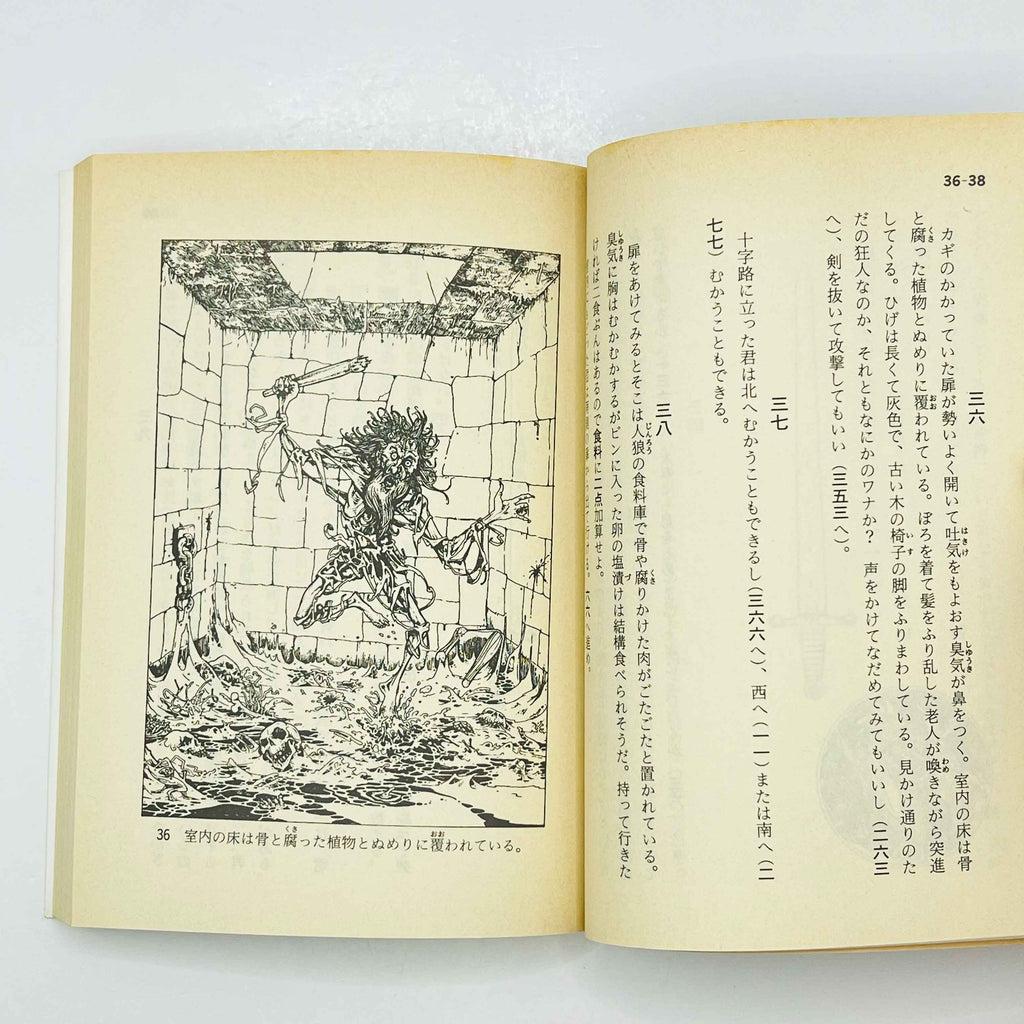 36-38
三六
カギのかかっていた扉が勢いよく開いて吐気をもよおす臭気が鼻をつく。室内の床は骨
と腐った植物とぬめりに覆われている。ぼろを着て髪をふり乱した老人が喚きながら突進
してくる。ひげは長くて灰色で、古い木の椅子の脚をふりまわしている。見かけ通りのた
だの狂人なのか、それともなにかのワナか？　声をかけてなだめてみてもいいし（二六三
へ）、剣を抜いて攻撃してもいい（三五三へ）。
三七
十字路に立った君は北へむかうこともできるし（三六六へ）、西へ（一一）または南へ（二
七七）むかうこともできる。
三八
扉をあけてみるとそこは人狼の食料庫で骨や腐りかけた肉がごたごたと置かれている。
臭気に胸はむかむかするがビンに入った卵の塩漬けは結構食べられそうだ。持って行きた
ければ二食ぶんはあるので食料に二点加算せよ。
六六へ進め。
36　室内の床は骨と腐った植物とぬめりに覆われている。